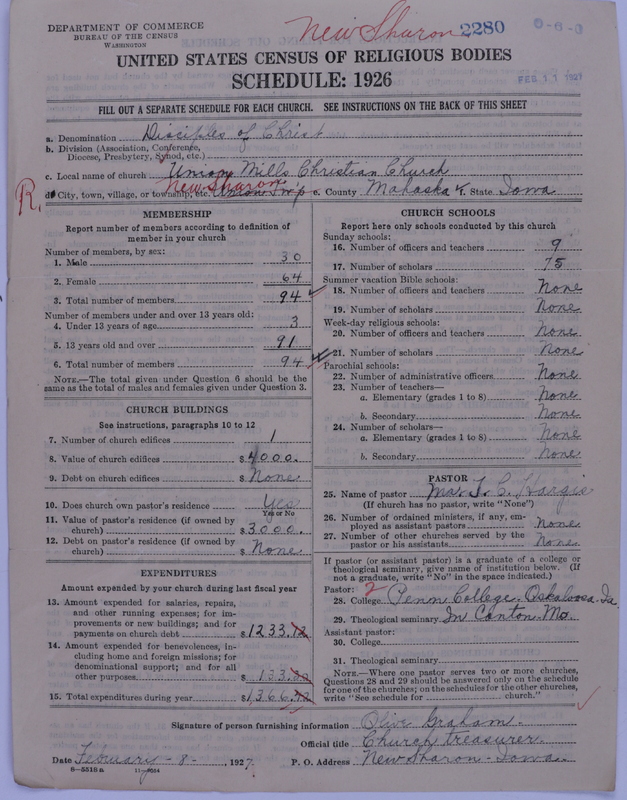 DEPARTMENT OF COMMERCE
BUREAU OF THE CENSUS
WASHINGTON
New Sharon 2280
FEB 11 1927
UNITED STATES CENSUS OF RELIGIOUS BODIES
SCHEDULE: 1926
FILL OUT A SEPARATE SCHEDULE FOR EACH CHURCH. SEE INSTRUCTIONS ON THE BACK OF THIS SHEET
a. Denomination Disciples of Christ
b. Division (Association, Conference,
Diocese, Presbytery, Synod, etc.)
c. Local name of church Union Mills Christian Church
New Sharon
R. d. City, town, village, or township, etc. Union Twp e. County Mahaska f. State Iowa
MEMBERSHIP
Report number of members according to definition of
member in your church
Number of members, by sex:
1. Male 30
2. Female 64
3. Total number of members 94
Number of members under and over 13 years old:
4. Under 13 years of age 3
5. 13 years old and over 91
6. Total number of members 94
NOTE.—The total given under Question 6 should be the
same as the total of males and females given under Question 3.
CHURCH BUILDINGS
See instructions, paragraphs 10 to 12
7. Number of church edifices 1
8. Value of church edifices $4000.
9. Debt on church edifices $None
10. Does church own pastor's residence Yes
Yes or No
11. Value of pastor's residence (if owned by
church) $3000.
12. Debt on pastor's residence (if owned by
church) $None
EXPENDITURES
Amount expended by your church during last fiscal year
13. Amount expended for salaries, repairs,
and other running expenses; for im-
provements or new buildings; and for
payments on church debt $1233.12
14. Amount expended for benevolences, in-
cluding home and foreign missions; for
denominational support; and for all
other purposes $133.
15. Total expenditures during year $1366.
CHURCH SCHOOLS
Report here only schools conducted by this church
Sunday schools:
16. Number of officers and teachers 9
17. Number of scholars 75
Summer vacation Bible schools:
18. Number of officers and teachers None
19. Number of scholars None
Week-day religious schools:
20. Number of officers and teachers None
21. Number of scholars None
Parochial schools:
22. Number of administrative officers None
23. Number of teachers—
a. Elementary (grades 1 to 8) None
b. Secondary None
24. Number of scholars—
a. Elementary (grades 1 to 8) None
b. Secondary None
PASTOR
25. Name of pastor C. Hargis
(If church has no pastor, write "None")
26. Number of ordained ministers, if any, em-
ployed as assistant pastors None
27. Number of other churches served by the
pastor or his assistants None
If pastor (or assistant pastor) is a graduate of a college or
theological seminary, give name of institution below. (If
not a graduate, write "No" in the space indicated.)
Pastor: 2
28. College Penn College Oskaloosa Ia
29. Theological seminary In Canton Mo.
Assistant pastor:
30. College
31. Theological seminary
NOTE.—Where one pastor serves two or more churches,
Questions 28 and 29 should be answered only on the schedule
for one of the churches; on the schedules for the other churches,
write "See schedule for church."
Signature of person furnishing information Olive Graham.
Official title Church treasurer.
Date February - 8 -, 1927. P. O. Address New Sharon - Iowa.
8—5518a